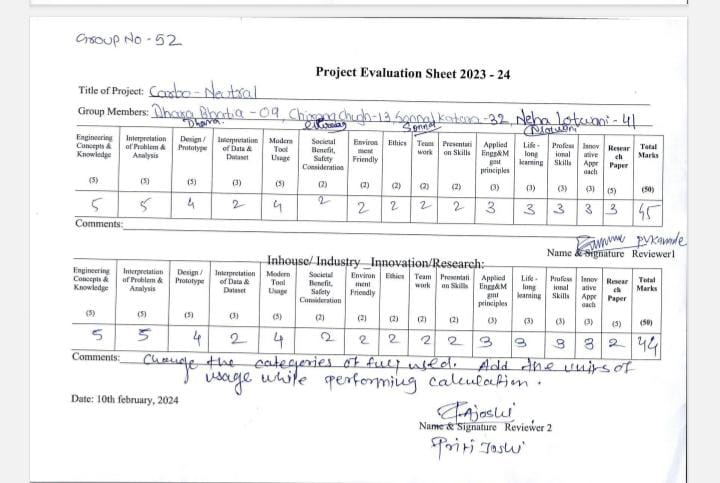 Group No - 52
Project Evaluation Sheet 2023 - 24
Title of Project: Carbo - Neutral
Group Members: Dhara Bhatia - 09, Chirag Chugh - 13, Sonnal Kataria - 32, Neha Lotwani - 41
Dhara. Sonnal
Engineering Concepts & Knowledge Interpretation of Problem & Analysis Design / Prototype Interpretation of Data & Dataset Modern Tool Usage Societal Benefit, Safety Consideration Environ ment Friendly Ethics Team work Presentati on Skills Applied Engg&M gmt principles Life - long learning Profess ional Skills Innov ative Appr oach Resear ch Paper Total Marks
(5) (5) (5) (3) (5) (2) (2) (2) (2) (2) (3) (3) (3) (3) (5) (50)
5 5 4 2 4 2 2 2 2 2 3 3 3 3 3 45
Comments:
Name & Signature Reviewer1
Inhouse/ Industry _Innovation/Research:
Engineering Concepts & Knowledge Interpretation of Problem & Analysis Design / Prototype Interpretation of Data & Dataset Modern Tool Usage Societal Benefit, Safety Consideration Environ ment Friendly Ethics Team work Presentati on Skills Applied Engg&M gmt principles Life - long learning Profess ional Skills Innov ative Appr oach Resear ch Paper Total Marks
(5) (5) (5) (3) (5) (2) (2) (2) (2) (2) (3) (3) (3) (3) (5) (50)
5 5 4 2 4 2 2 2 2 2 3 3 3 3 2 44
Comments: Change the categories of fuel used. Add the units of
usage while performing calculation.
Date: 10th february, 2024
Name & Signature Reviewer 2
Priti Joshi